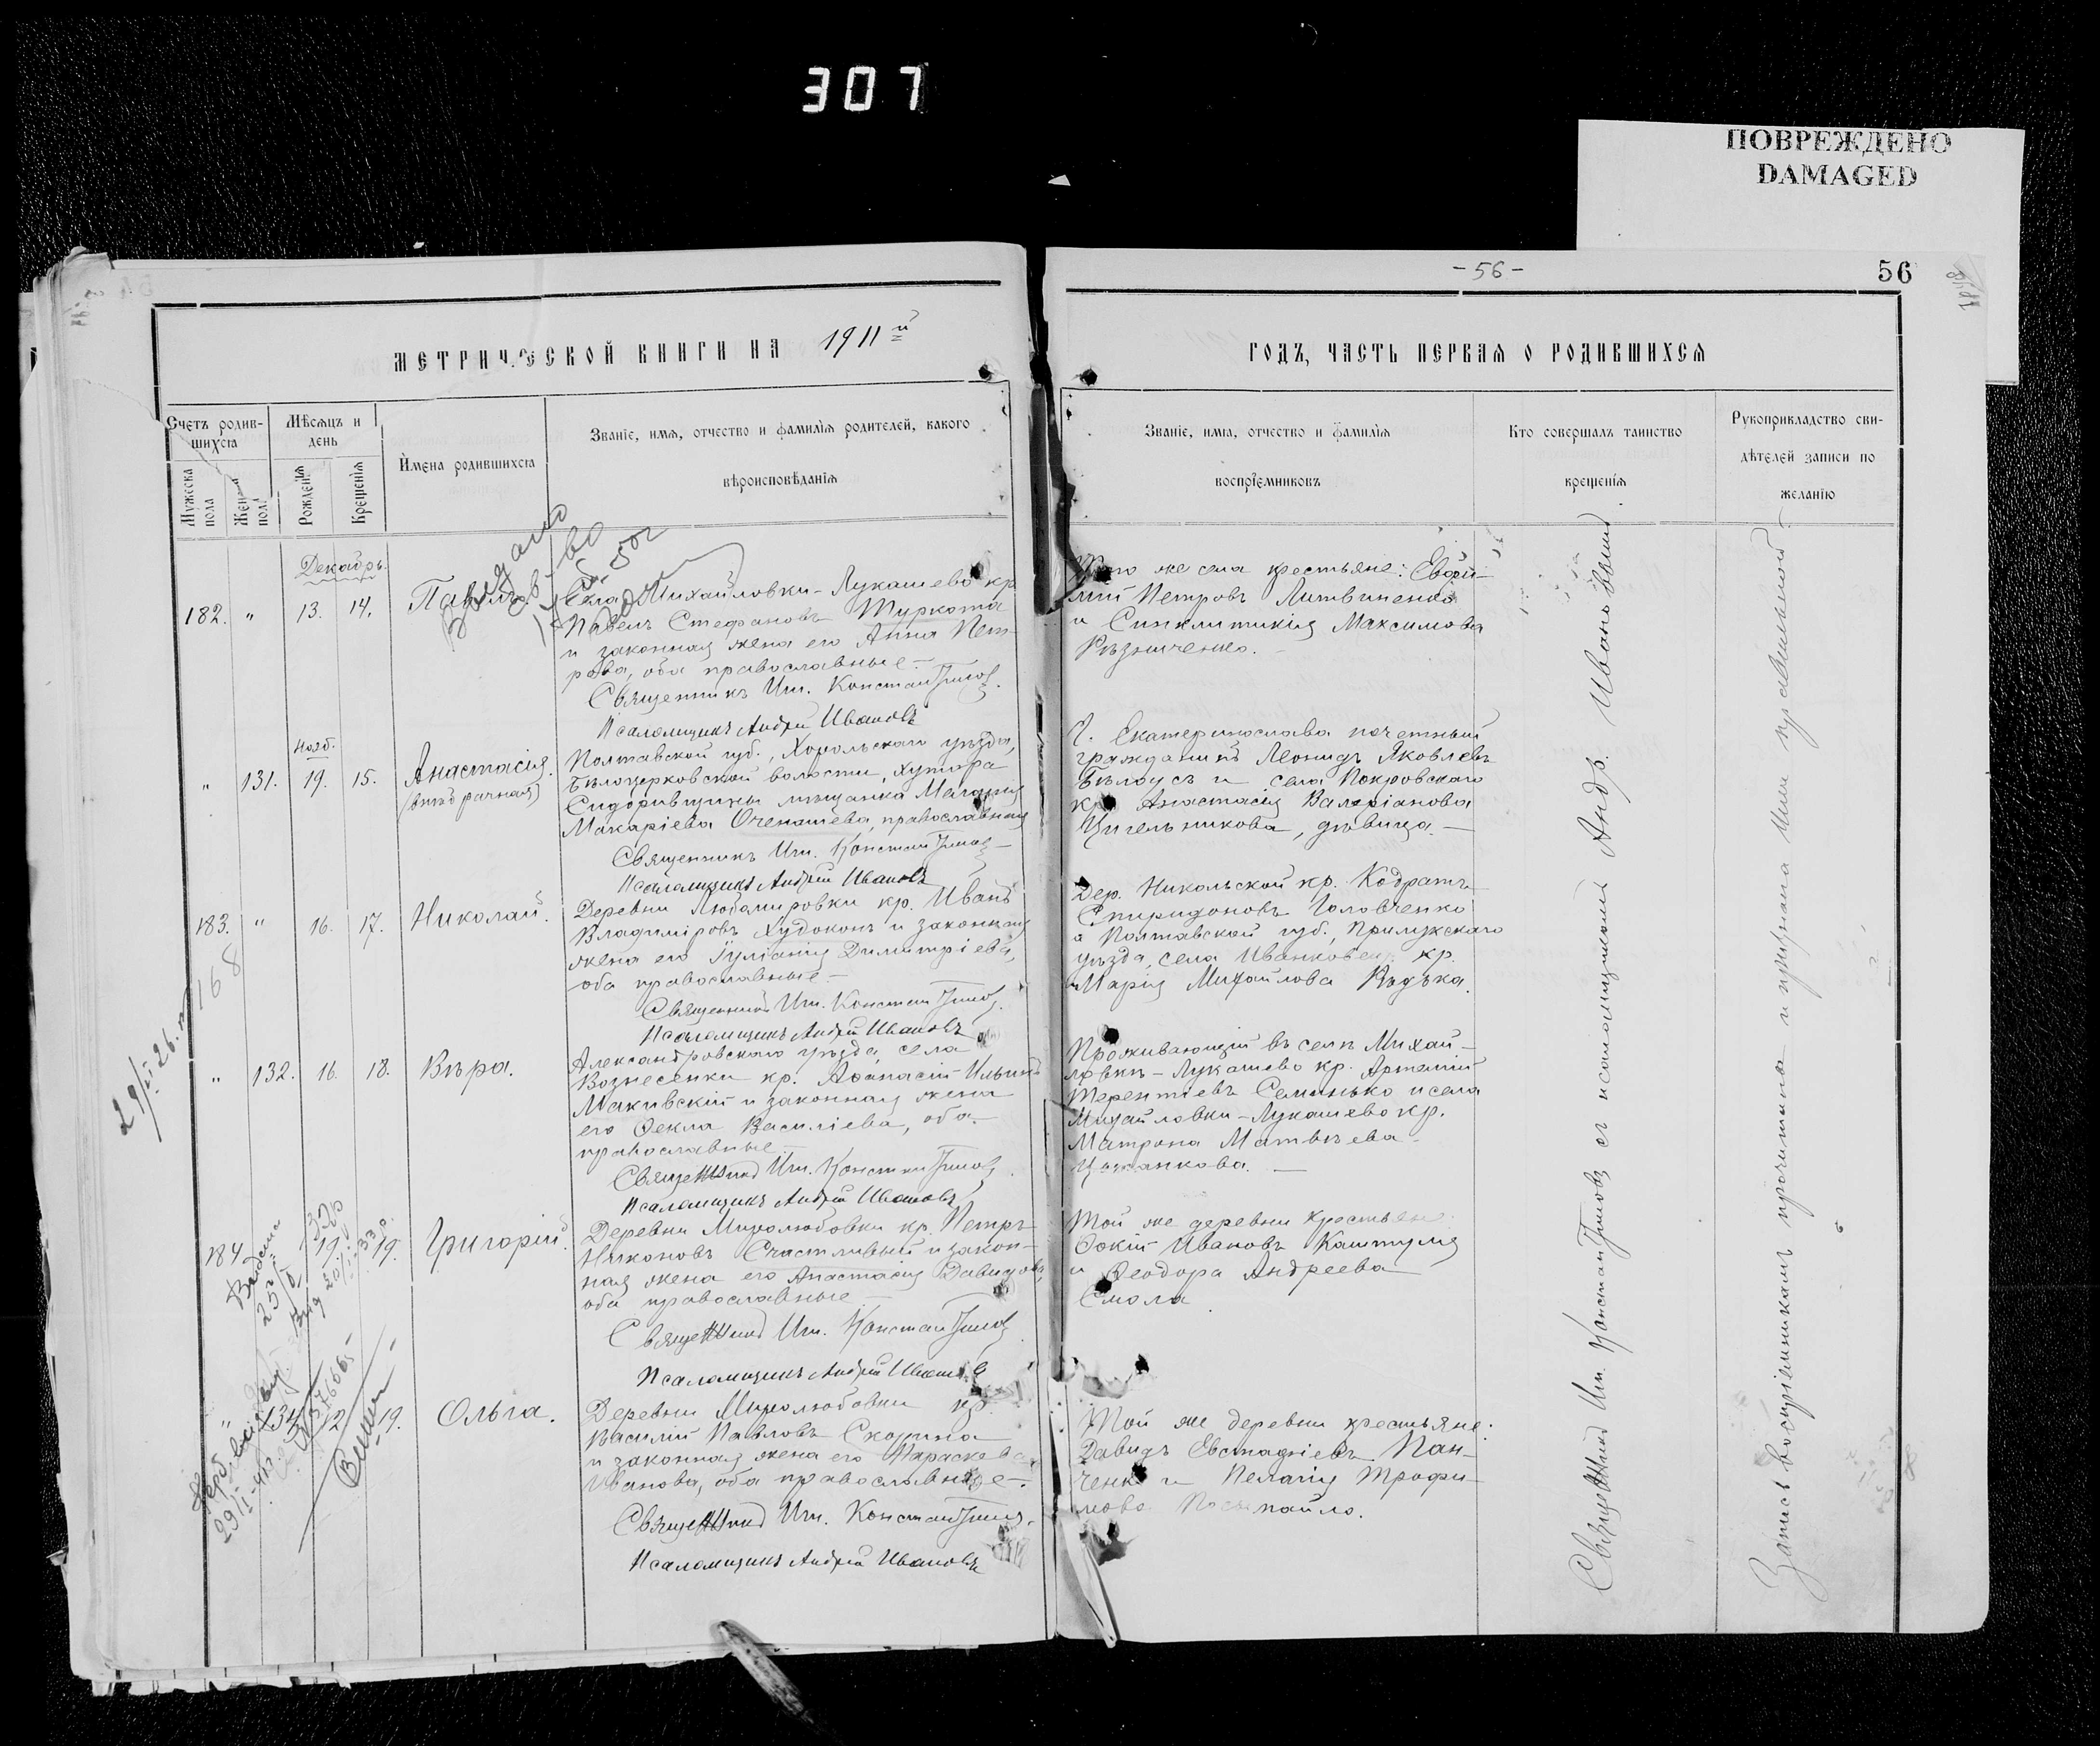 307
ПОВРЕЖДЕНО
DAMAGED
- 56 -
56
МЕТРИЧЕСКОЙ КНИГИ НА 1911й
ГОДЪ, ЧАСТЬ ПЕРВАЯ О РОДИВШИХСЯ
Счетъ родив-
шихся
Мужеска
пола
Жен
пола
Мѣсяцъ и
день
Рожденія
Крещенія
Имена родившихся
Званіе, имя, отчество и фамилія родителей, какого
вѣроисповѣданія
Званіе, имя, отчество и фамилія
воспріемниковъ
Кто совершалъ таинство
крещенія
Рукоприкладство сви-
дѣтелей записи по
желанію
Декабрь.
182. " 13. 14. Павелъ.
Села Михайловки-Лукашево кр.
Павелъ Стефановъ Туркота
и законная жена его Анна Пет-
рова, оба православные.-
Священникъ Іоан. Константиновъ.
Псаломщикъ Андрей Ивановъ
Того же села крестьяне: Евфи-
мій Петровъ Литвиненко
и Синклитикія Максимова
Рѣзниченко.
Нояб.
" 131. 19. 15. Анастасія.
(внѣбрачная)
Полтавской губ., Хорольскаго уѣзда,
Бѣлоцерковской волости, хутора
Сидорившины мѣщанка Марія
Макаріева Оченашева, православная
Священникъ
Псаломщикъ Андрей Ивановъ
Г. Екатеринослава почетный
гражданинъ Леонидъ Яковлевъ
Бѣлоусъ и села Покровскаго
кр. Анастасія Валеріанова
Цигельникова, дѣвица.-
183. " 16. 17. Николай.
168
Деревни Любимировки кр. Иванъ
Владиміровъ Худоконъ и законная
жена его Іуліанія Димитріева,
оба православные-
Священникъ
Псаломщикъ Андрей Ивановъ
Дер. Никольской кр. Кодратъ
Спиридоновъ Головченко
а Полтавской губ., Прилукскаго
уѣзда, села Иванковец кр.
Марія Михайлова Рѣдька.
" 132. 16. 18. Вѣра.
Александровскаго уѣзда, села
Вознесенки кр. Аѳанасій Ильинъ
Макивскій и законная жена
его Ѳекла Василіева, оба
православные-
Священникъ
Псаломщикъ Андрей Ивановъ
Проживающій въ селѣ Михай-
ловкѣ-Лукашево кр. Артемій
Терентіевъ Семинько и села
Михайловки-Лукашево кр.
Матрона Матвѣева
Цыганкова.-
184 19. 19. Григорій.
Деревни Миролюбовки кр. Петръ
Никоновъ Счастливый и закон-
ная жена его Анастасія Давидова,
оба православные-
Священникъ
Псаломщикъ Андрей Ивановъ
Той же деревни крестьяне:
Фокій Ивановъ Каштуля
и Ѳеодора Андреева
Смола.
" 134 19. Ольга.
Деревни Миролюбовки кр.
Василій Павловъ Скорина
и законная жена его Параскева
Иванова, оба православные-.
Священникъ
Псаломщикъ Андрей Ивановъ
Той же деревни крестьяне:
Давидъ Евстафіевъ Пан-
ченко и Пелагія Трофи-
мова
Священникъ Іоан. Константиновъ съ псаломщикомъ Андр. Ивановымъ
Запись воспріемникамъ прочитана и признана ими правильной